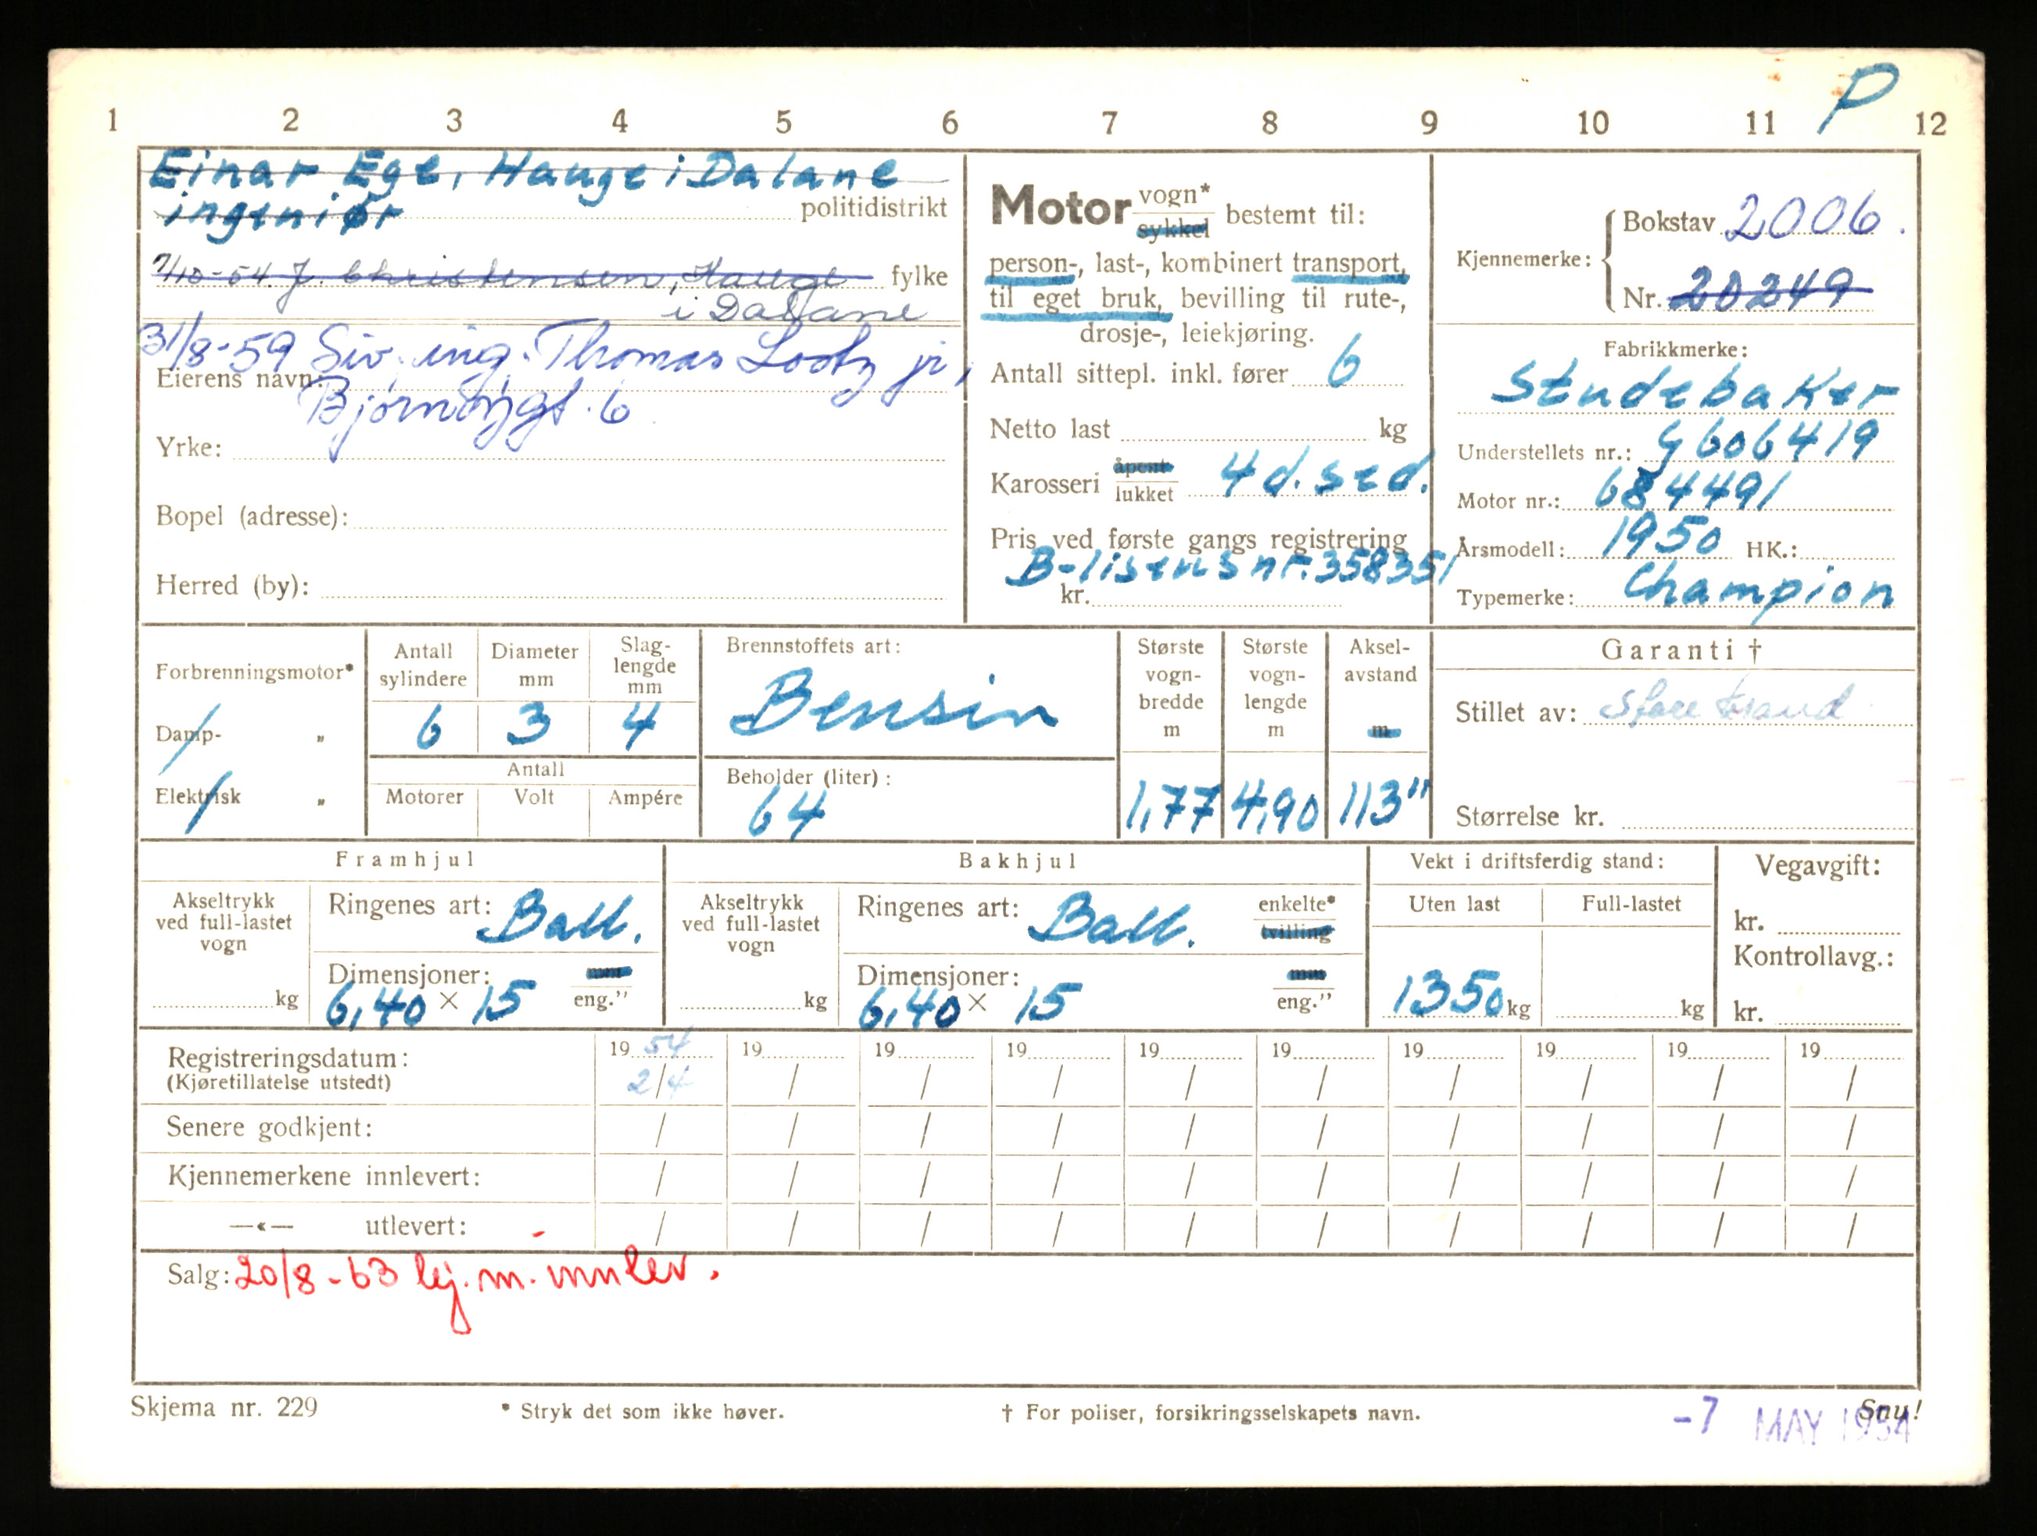 P
1 2 3 4 5 6 7 8 9 10 11 12
Einar Ege, Hauge i Dalane
ingeniør politidistrikt
7/10-54. J. Christensen, Hauge fylke
i Dalane
31/8-59 Siv. ing. Thomas Lootz jr,
Eierens navn:
Bjørnøygt. 6
Yrke:
Bopel (adresse):
Herred (by):
Motor vogn* bestemt til:
sykkel
person-, last-, kombinert transport,
til eget bruk, bevilling til rute-,
drosje-, leiekjøring.
Antall sittepl. inkl. fører 6
Netto last kg
Karosseri åpent 4 d. sed.
lukket
Pris ved første gangs registrering
B-lisens nr. 358351
kr.
Kjennemerke: Bokstav 2006.
Nr. 20249
Fabrikkmerke:
Studebaker
Understellets nr.: G606419
Motor nr.: 684491
Årsmodell: 1950 HK.:
Typemerke: Champion
Forbrenningsmotor*
Damp- „
Elektrisk „
Antall sylindere 6
Diameter mm 3
Slaglengde mm 4
Antall
Motorer Volt Ampére
Brennstoffets art:
Bensin
Beholder (liter):
64
Største vognbredde m 1,77
Største vognlengde m 4,90
Akselavstand m 113"
Garanti †
Stillet av: Storebrand
Størrelse kr.
Framhjul
Akseltrykk ved full-lastet vogn kg
Ringenes art: Ball.
Dimensjoner: mm
6,40 × 15 eng."
Bakhjul
Akseltrykk ved full-lastet vogn kg
Ringenes art: Ball. enkelte*
tvilling
Dimensjoner: mm
6,40 × 15 eng."
Vekt i driftsferdig stand:
Uten last Full-lastet
1350 kg kg
Vegavgift:
kr.
Kontrollavg.:
kr.
Registreringsdatum: 19 54 19 19 19 19 19 19 19 19 19
(Kjøretillatelse utstedt) 2/4 / / / / / / / / /
Senere godkjent: / / / / / / / / / /
Kjennemerkene innlevert: / / / / / / / / / /
—«— utlevert: / / / / / / / / / /
Salg: 20/8-63 kj. m. innlev.
Skjema nr. 229 * Stryk det som ikke høver. † For poliser, forsikringsselskapets navn. Snu!
-7 MAY 1954